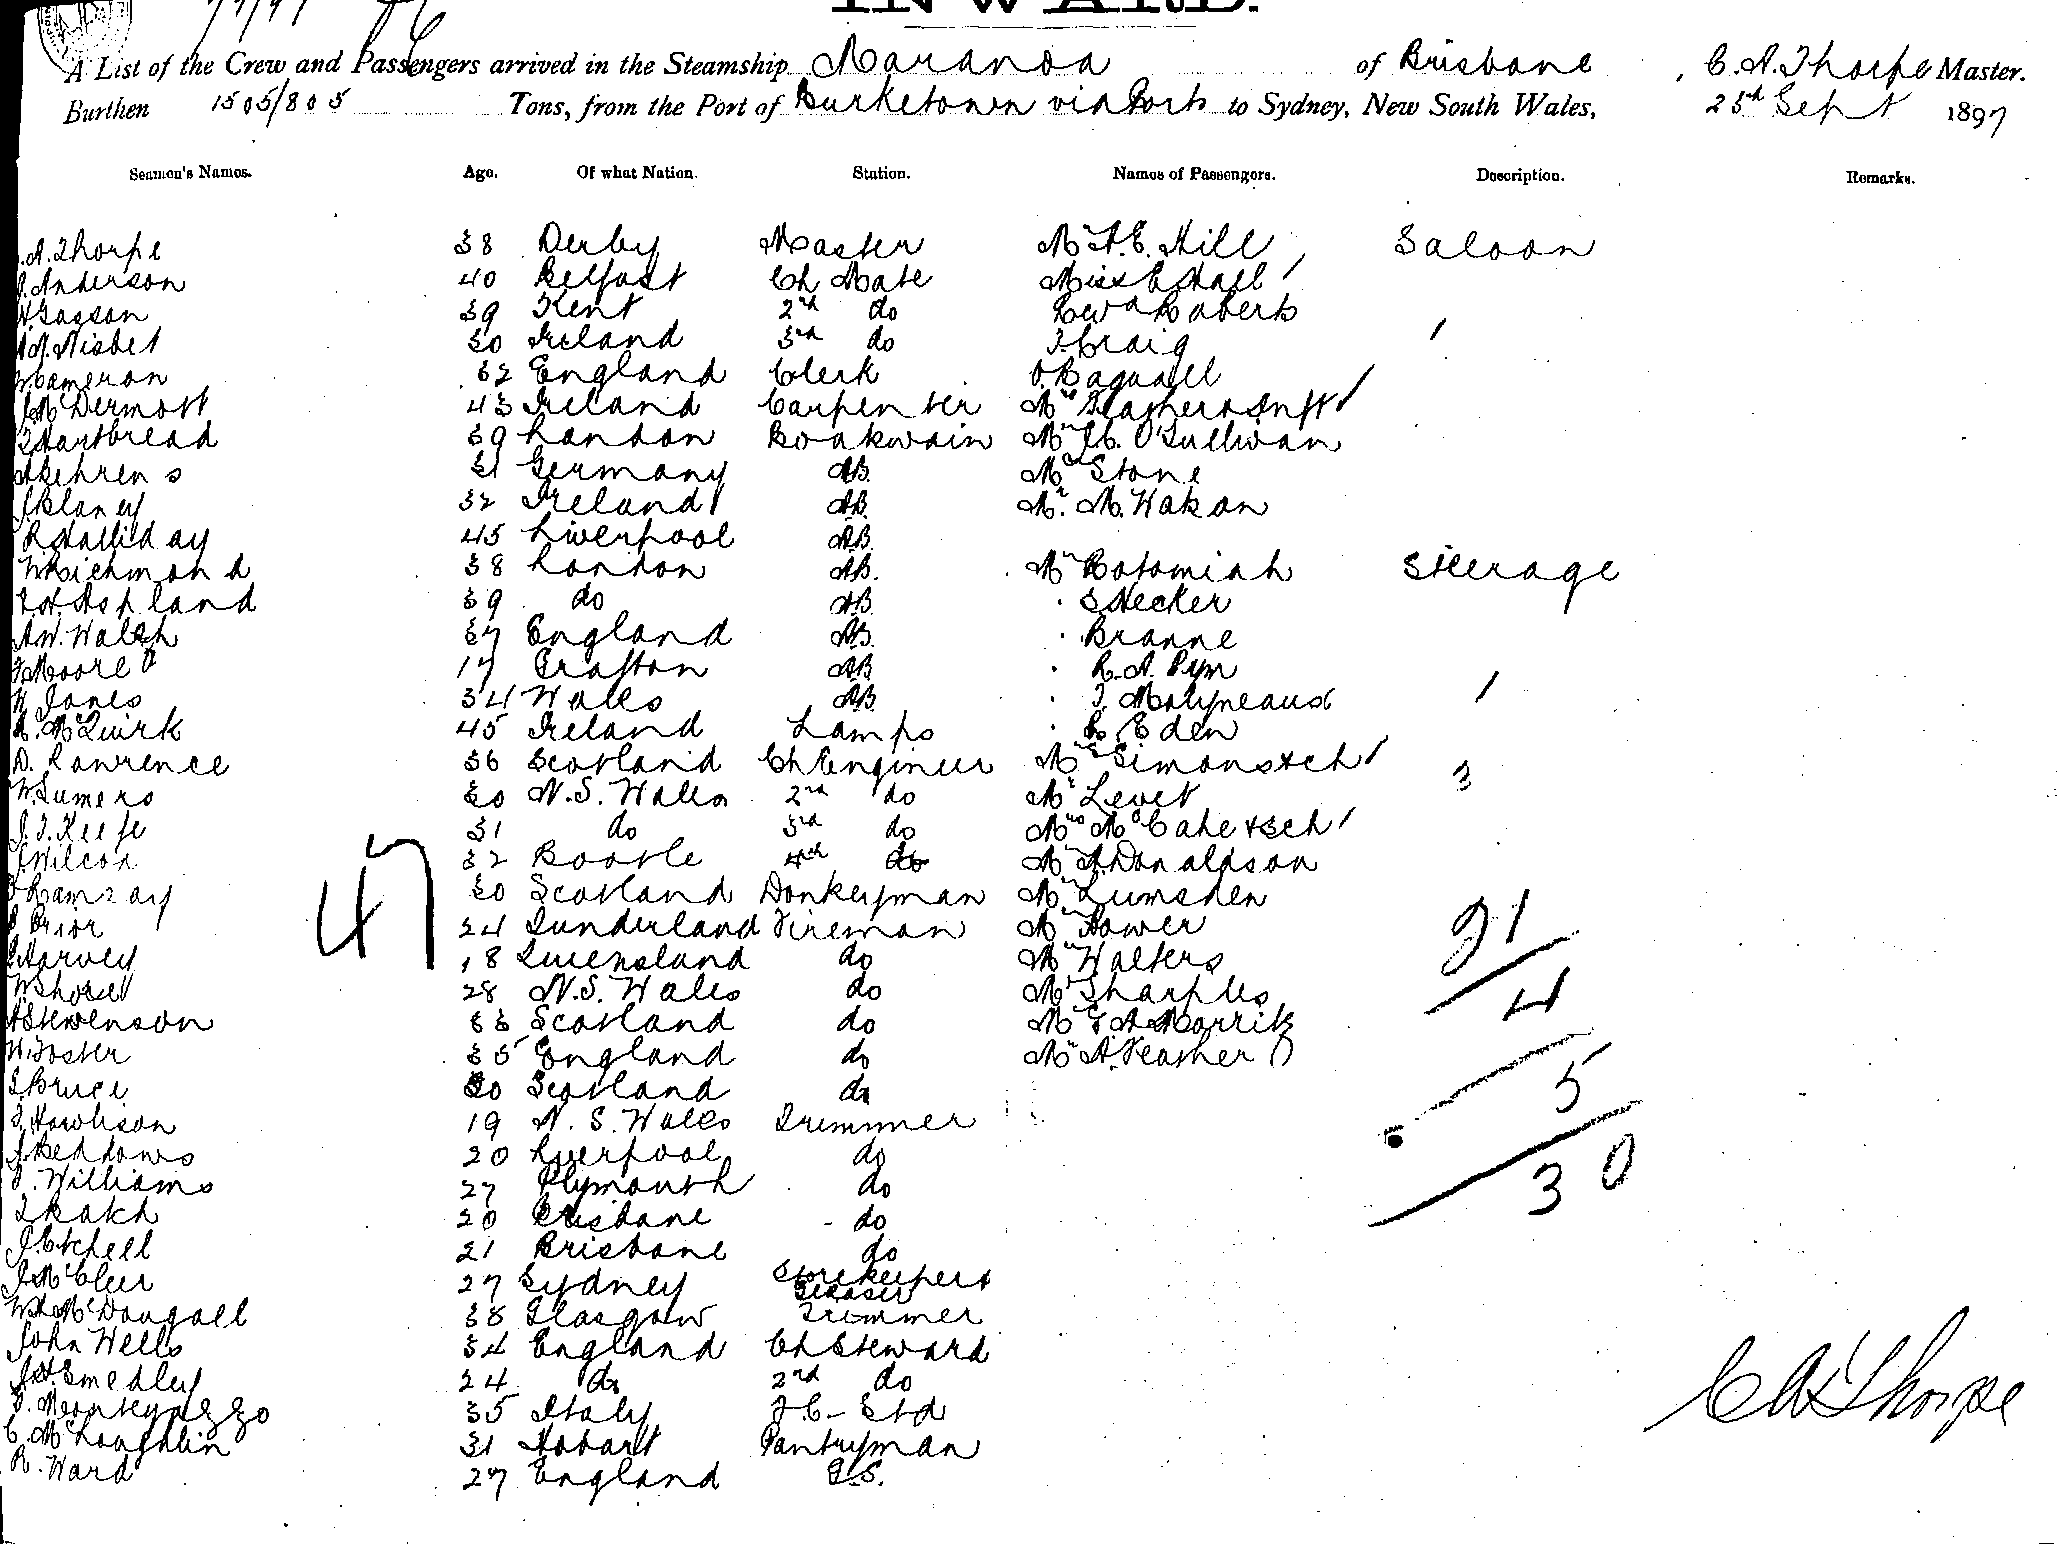 INWARD.
A List of the Crew and Passengers arrived in the Steamship Maranoa of Brisbane, C. A. Thorpe Master.
Burthen 1505/805 Tons, from the Port of Burketown via Ports to Sydney, New South Wales, 25th Sept 1897
Seamen's Names. Age. Of what Nation. Station. Names of Passengers. Description. Remarks.
A. Thorpe 38 Derby Master Mr A. E. Hill Saloon
Anderson 40 Belfast Ch Mate Miss E Hall
Gasson 39 Kent 2nd do Rev Roberts
Nisbet 30 Ireland 3rd do Craig
Cameron 32 England Clerk Bagnall
McDermott 43 Ireland Carpenter Mrs & Inft
Hartbread 39 London Boatswain Mr O'Sullivan
Behrens 31 Germany AB. Stone
Blaney 32 Ireland AB. Mr. M.
R Halliday 45 Liverpool AB.
W Richmond 38 London AB. Mr Steerage
Aspland 39 do AB. Hecker
A W. Walsh 37 England AB. Branne
Moore 17 Grafton AB R. A. Pym
Jones 34 Wales AB. J. Molyneaux
McQuirk 45 Ireland Lamps Eden
D. Lawrence 36 Scotland Ch Engineer Mrs 3
W. Sumers 30 N. S. Wales 2nd do Mr Levet
J. T. Keefe 31 do 3rd do Mrs McCahe & 3ch
Wilcon 32 Bootle 4th do Mr A. Donaldson
47
Ramzay 30 Scotland Donkeyman Mr Lumsden
Prior 24 Sunderland Fireman Mr Power
Harvey 18 Queensland do Mr Walters
W 28 N. S. Wales do Mr Sharples
Stevenson 33 Scotland do Mr
21
4
W. Foster 35 England do Mr A. Feather
Bruce 30 Scotland do
5
Howhison 19 N. S. Wales Trimmer
Beddows 20 Liverpool do
Williams 27 Plymouth do
30
20 Brisbane do
J. Etchell 21 Brisbane do
J McCleer 27 Sydney Storekeeper & Greaser
McDougall 38 Glasgow Trimmer
John Wells 34 England Ch Steward
Smedley 24 do 2nd do
35 Italy F. C - Std
C. McLoughlin 31 Hobart Pantryman
R. Ward 27 England G. S.
C A Thorpe